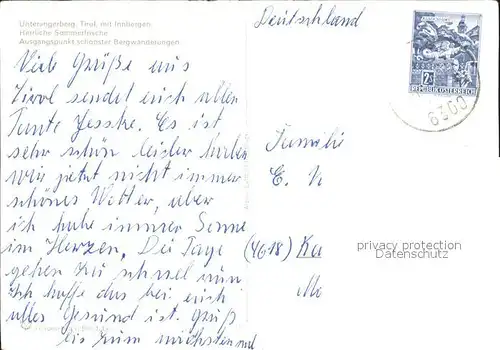 Unterangerberg, Tirol, mit Innbergen
Herrliche Sommerfrische
Ausgangspunkt schönster Bergwanderungen
Deutschland
2S
REPUBLIK ÖSTERREICH
6300
Viele Grüße aus
Tirol sendet euch allen
Tante Jesske. Es ist
sehr schön leider haben
wir jetzt nicht immer
schönes Wetter, aber
ich habe immer Sonne
im Herzen. Die Tage
gehen zu schnel nun
Ich hoffe das bei euch
alles Gesund ist. Gruß
bis zum nächsten mal
Familie
E. N
(4618) Ka
Mo
privacy protection
Datenschutz